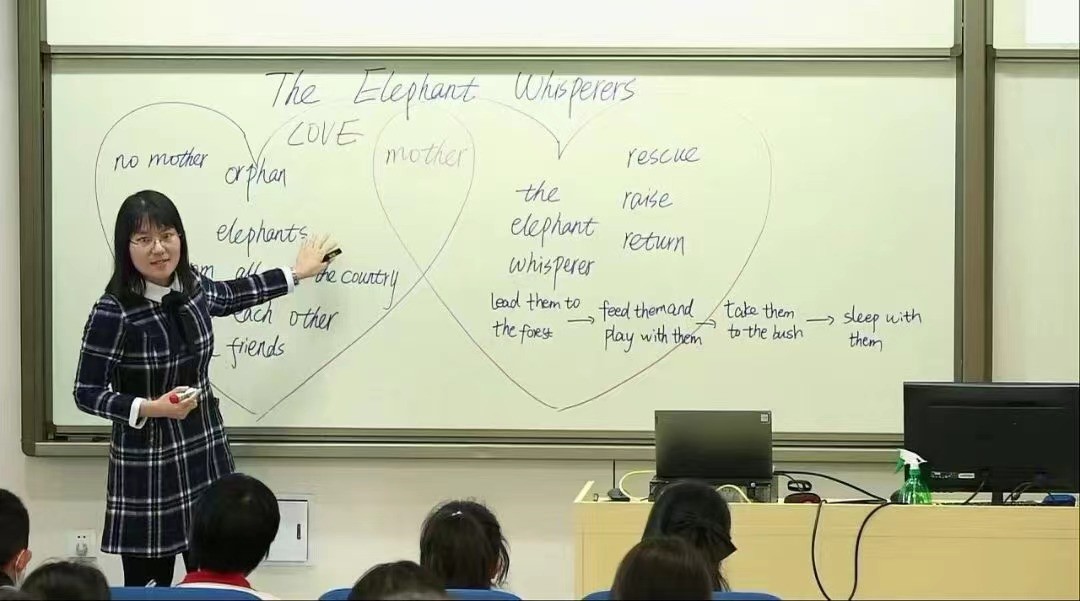 The Elephant Whisperers
LOVE
mother
no mother
orphan
elephants
the country
each other
friends
the
elephant
whisperer
rescue
raise
return
lead them to
the forest
→ feed them and
play with them
→ take them
to the bush
→ sleep with
them